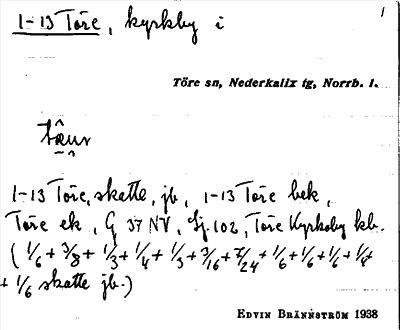 1-13 Töre, kyrkby i
1
Töre sn, Nederkalix tg, Norrb. l.
1-13 Töre, skatte, jb, 1-13 Töre bek,
Töre ek, G 37 NV, Sj. 102, Töre Kyrkoby kb.
(1/6 + 3/8 + 1/3 + 1/4 + 1/3 + 3/16 + 7/24 + 1/6 + 1/6 + 1/6 + 1/8
+ 1/6 skatte jb.)
EDVIN BRÄNNSTRÖM 1938